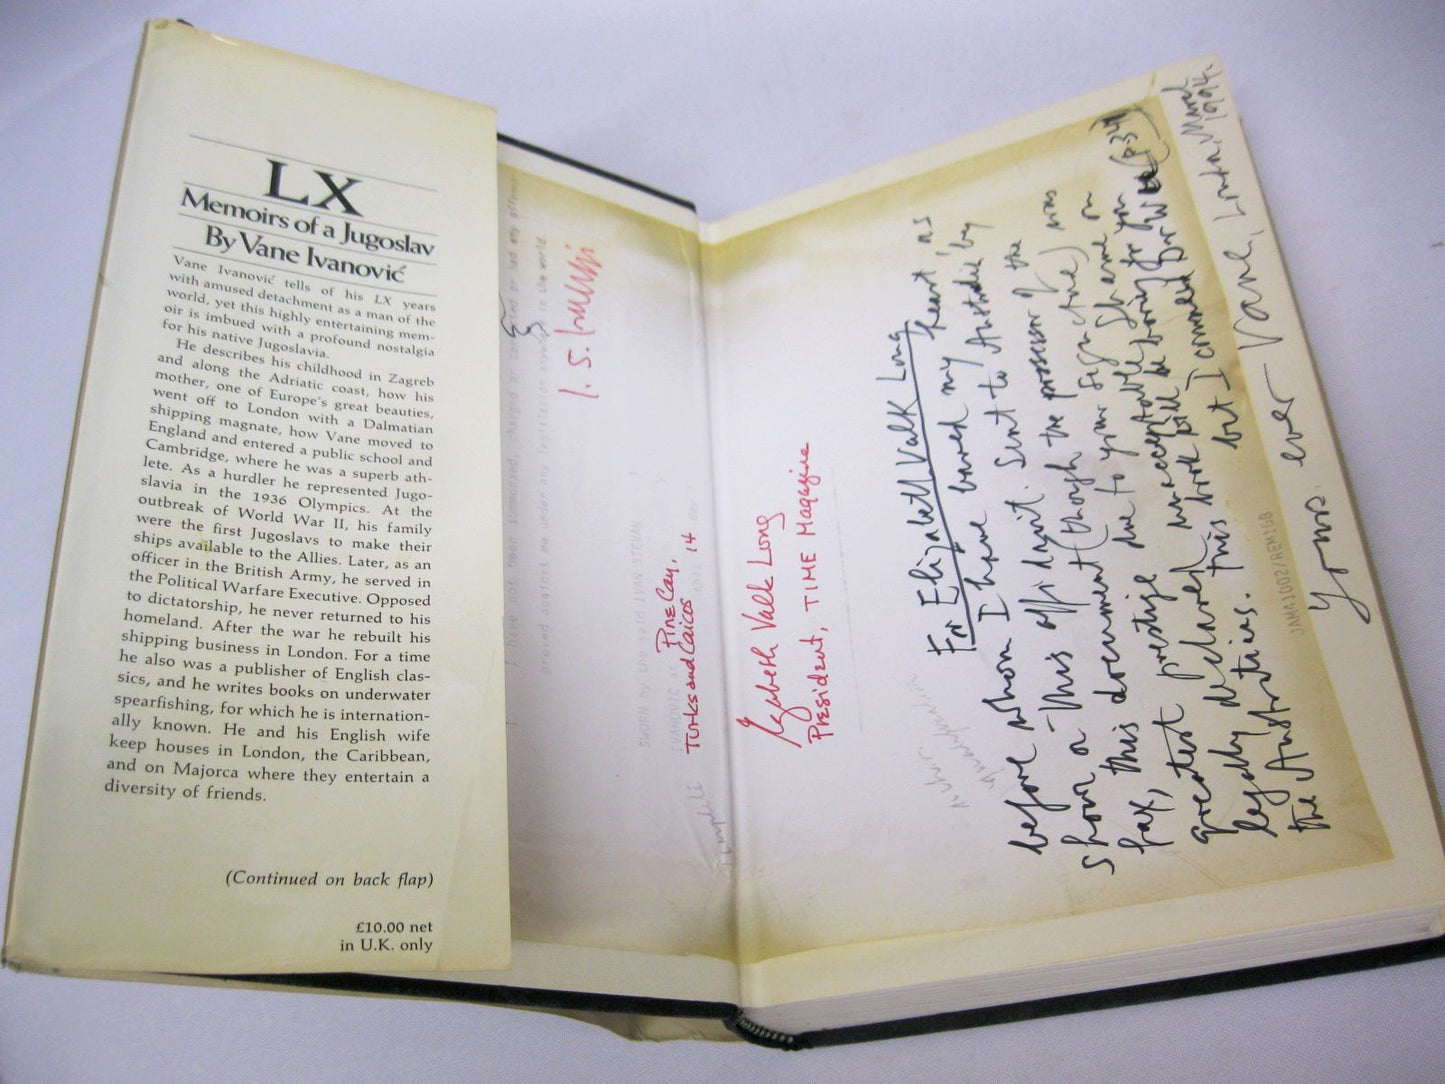 LX
Memoirs of a Jugoslav
By Vane Ivanović
Vane Ivanović tells of his LX years
with amused detachment as a man of the
world, yet this highly entertaining mem-
oir is imbued with a profound nostalgia
for his native Jugoslavia.
He describes his childhood in Zagreb
and along the Adriatic coast, how his
mother, one of Europe's great beauties,
went off to London with a Dalmatian
shipping magnate, how Vane moved to
England and entered a public school and
Cambridge, where he was a superb ath-
lete. As a hurdler he represented Jugo-
slavia in the 1936 Olympics. At the
outbreak of World War II, his family
were the first Jugoslavs to make their
ships available to the Allies. Later, as an
officer in the British Army, he served in
the Political Warfare Executive. Opposed
to dictatorship, he never returned to his
homeland. After the war he rebuilt his
shipping business in London. For a time
he also was a publisher of English clas-
sics, and he writes books on underwater
spearfishing, for which he is internation-
ally known. He and his English wife
keep houses in London, the Caribbean,
and on Majorca where they entertain a
diversity of friends.
(Continued on back flap)
£10.00 net
in U.K. only
I have not been
proved against me under any legislation anywhere in the world
I. S.
SWORN by the said IVAN STEVAN
IVANOVIC at Pine Cay,
Turks and Caicos 14
Elizabeth Valk Long
President, TIME Magazine
For Elizabeth Valk Long
before whom I have bared my heart, as
shown on this affidavit. Sent to Australia by
fax, this document (though the possessor of the
greatest prestige due to your signature) was
legally declared unacceptable. Shame on
the Australians. This book will be boring for you
but I commend (p. 34)
Yours ever Vane, London, March
1994.
JAMA1002/REMIGB